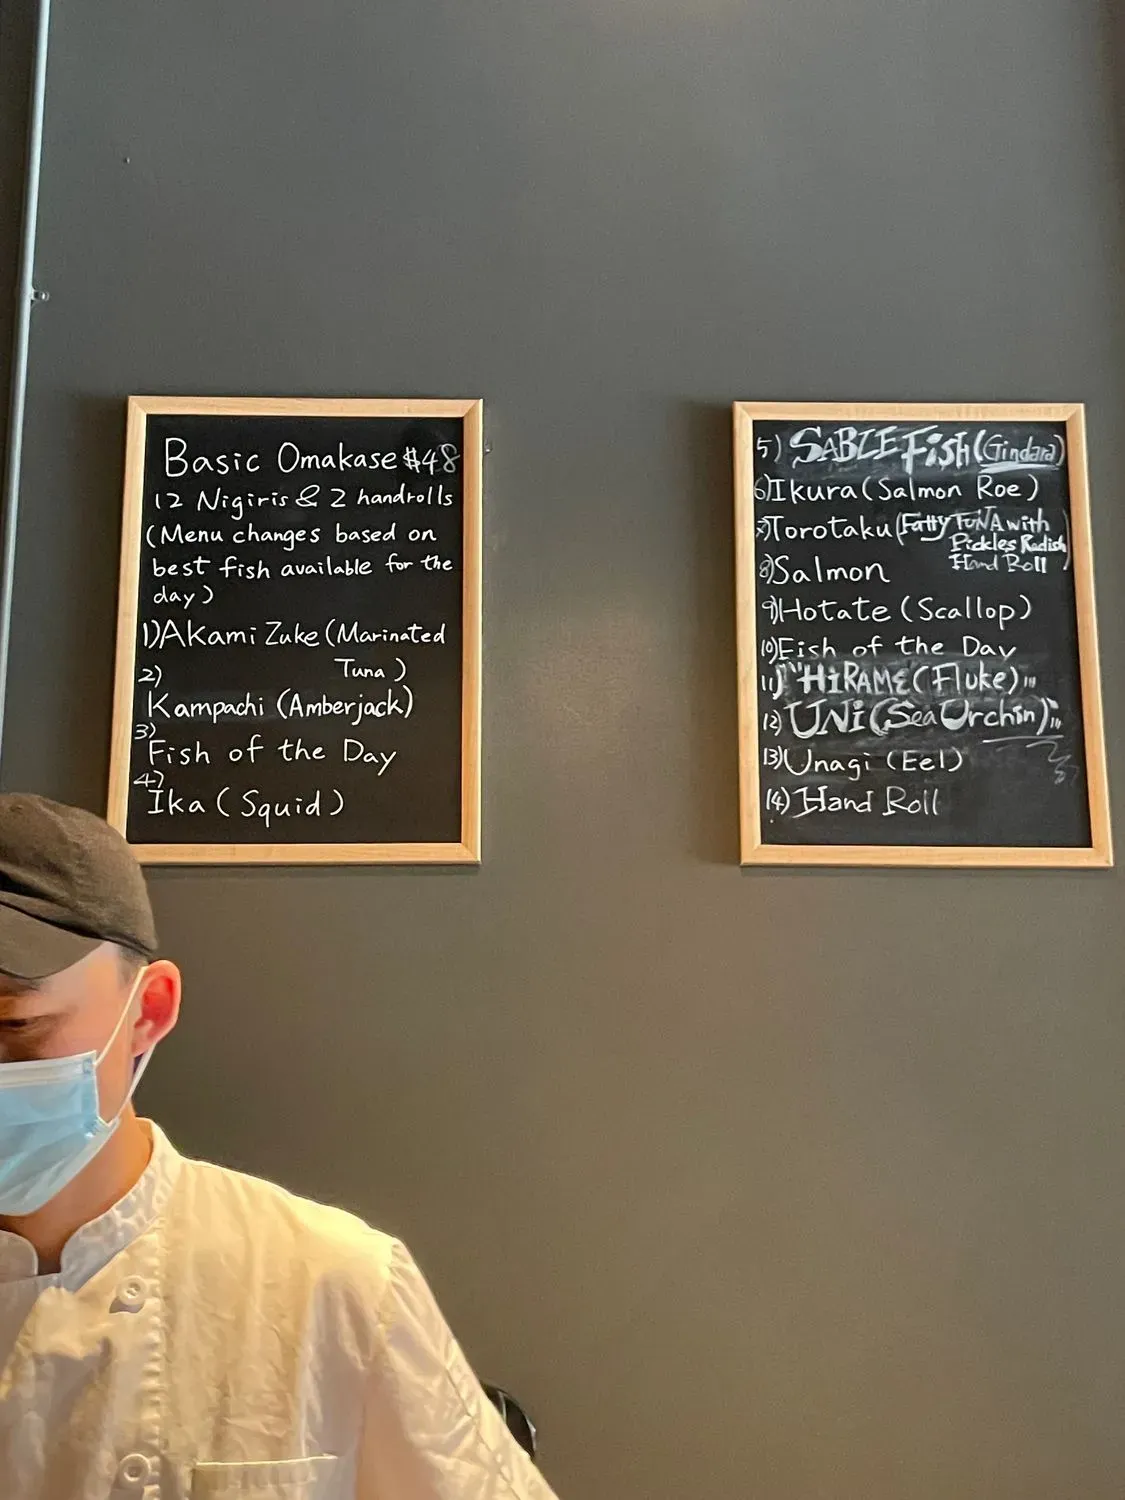 Basic Omakase $48
12 Nigiris & 2 handrolls
(Menu changes based on
best fish available for the
day)
1) Akami Zuke (Marinated
Tuna)
2)
Kampachi (Amberjack)
3)
Fish of the Day
4)
Ika (Squid)
5) SABLE Fish (Gindara)
6) Ikura (Salmon Roe)
7) Torotaku (Fatty TUNA with
Pickles Radish
Hand Roll)
8) Salmon
9) Hotate (Scallop)
10) Fish of the Day
11) "HiRAME (Fluke)"
12) UNi (Sea Urchin)
13) Unagi (Eel)
14) Hand Roll